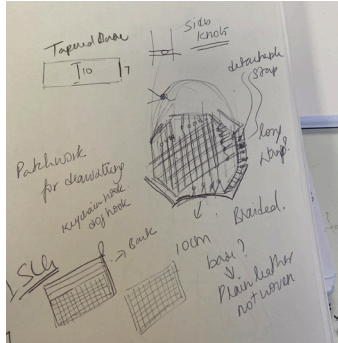 Tapered Base
T10
7
Side
Knots
detachable
strap
long
strap?
Patchwork
for drawstring
Keychain hook
dog hook
Braided.
Back
10cm
base?
Plain leather
not woven